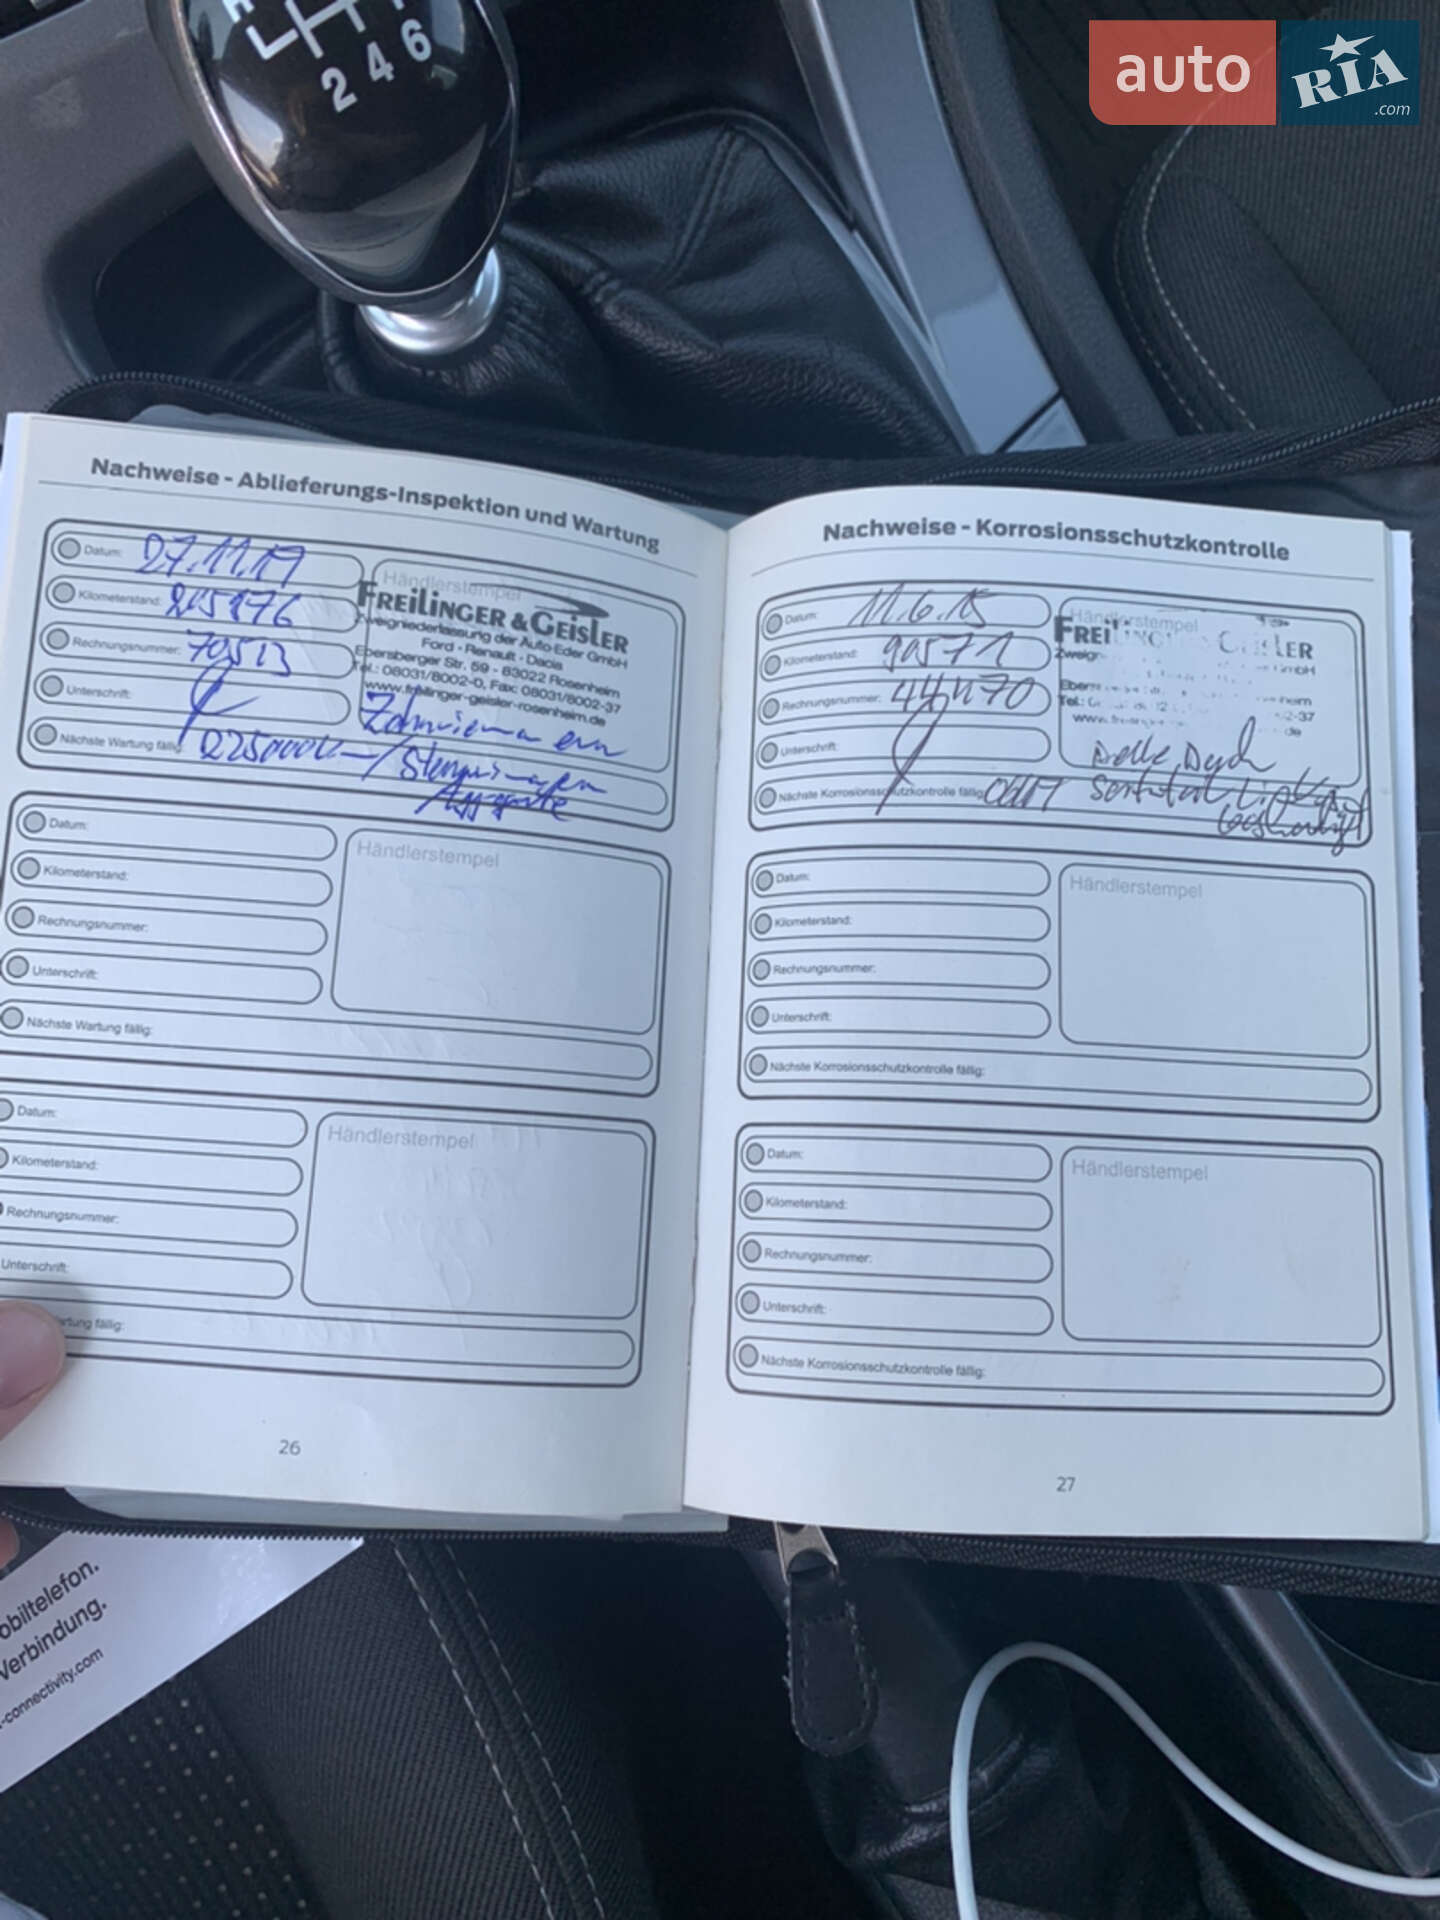 R
2 4 6
auto RIA
.com
Nachweise - Ablieferungs-Inspektion und Wartung
Datum: 27.11.17
Kilometerstand:
Rechnungsnummer: 70513
Unterschrift:
Nächste Wartung fällig: 225000
Händlerstempel
FREILINGER & GEISLER
Zweigniederlassung der Auto Eder GmbH
Ford - Renault - Dacia
Ebersberger Str. 59 - 83022 Rosenheim
Tel.: 08031/8002-0, Fax: 08031/8002-37
www.freilinger-geisler-rosenheim.de
Zahnriemen
Aggregate
Datum:
Kilometerstand:
Rechnungsnummer:
Unterschrift:
Nächste Wartung fällig:
Händlerstempel
Datum:
Kilometerstand:
Rechnungsnummer:
Unterschrift:
artung fällig:
Händlerstempel
26
Nachweise - Korrosionsschutzkontrolle
Datum: 11.6.15
Kilometerstand: 90571
Rechnungsnummer:
Unterschrift:
Nächste Korrosionsschutzkontrolle fällig:
Händlerstempel
FREI GEISLER
Zweign GmbH
Eber heim
Tel.: 2-37
www.f de
Delle Dach
Datum:
Kilometerstand:
Rechnungsnummer:
Unterschrift:
Nächste Korrosionsschutzkontrolle fällig:
Händlerstempel
Datum:
Kilometerstand:
Rechnungsnummer:
Unterschrift:
Nächste Korrosionsschutzkontrolle fällig:
Händlerstempel
27
obiltelefon.
Verbindung.
-connectivity.com